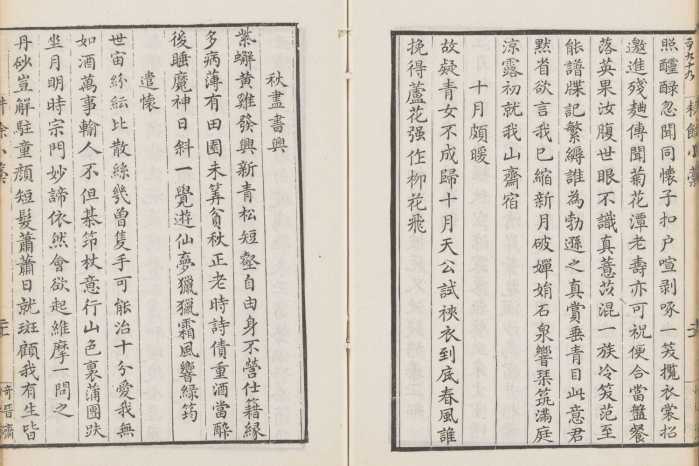 照醽醁忽聞同懷子扣户喧剥啄一笑攬衣裳招
邀進殘麯傳聞菊花潭老壽亦可祝便合當盤餐
落英果汝腹世眼不識真薏苡混一族冷笑范至
能譜牒記繁縟誰為勃遜之真賞垂青目此意君
默省欲言我已縮新月破嬋娟石泉響琹筑滿庭
涼露初就我山齋宿
十月頗暖
故疑青女不成歸十月天公試裌衣到底春風誰
挽得蘆花强作柳花飛
秋盡書興
紫蠏黄雞發興新青松短壑自由身不營仕籍緣
多病薄有田園未筭貧秋正老時詩債重酒當醉
後睡魔神日斜一覺遊仙夢獵獵霜風響緑筠
遣懷
世宙紛紜比散絲幾曽隻手可能治十分愛我無
如酒萬事輸人不但棊筇杖意行山色裏蒲團趺
坐月明時宗門妙諦依然會欲起維摩一問之
丹砂豈解駐童顔短髪蕭蕭日就斑顧我有生皆